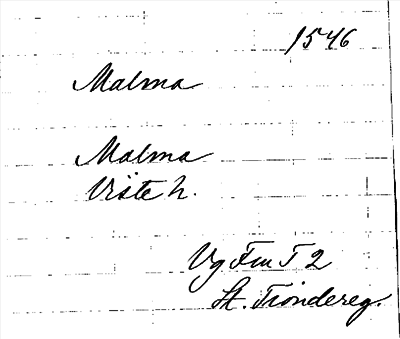 1546
Malma
Malma
Viste h.
Vg Fm T 2
St. Tiondereg.